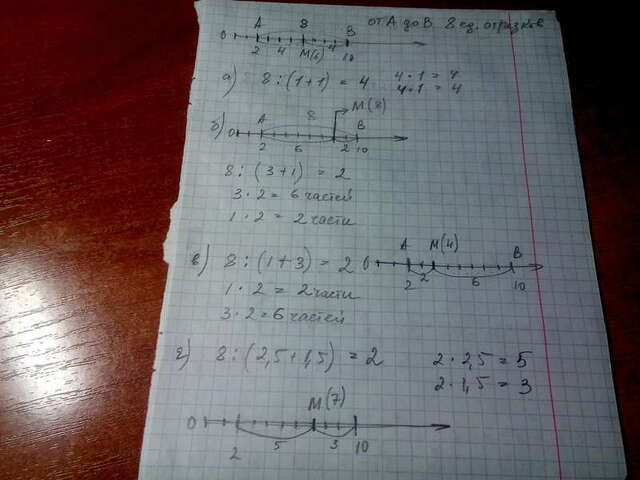 от А до В 8 ед. отрезков
А В В
0 2 4 М(6) 4 10
а) 8 : (1+1) = 4 4·1 = 4
4·1 = 4
М(8)
б) 0 А 8 В
2 6 2 10
8 : (3+1) = 2
3·2 = 6 частей
1·2 = 2 части
в) 8 : (1+3) = 2 0 А М(4) В
2 2 6 10
1·2 = 2 части
3·2 = 6 частей
г) 8 : (2,5+1,5) = 2 2·2,5 = 5
2·1,5 = 3
М(7)
0 2 5 3 10